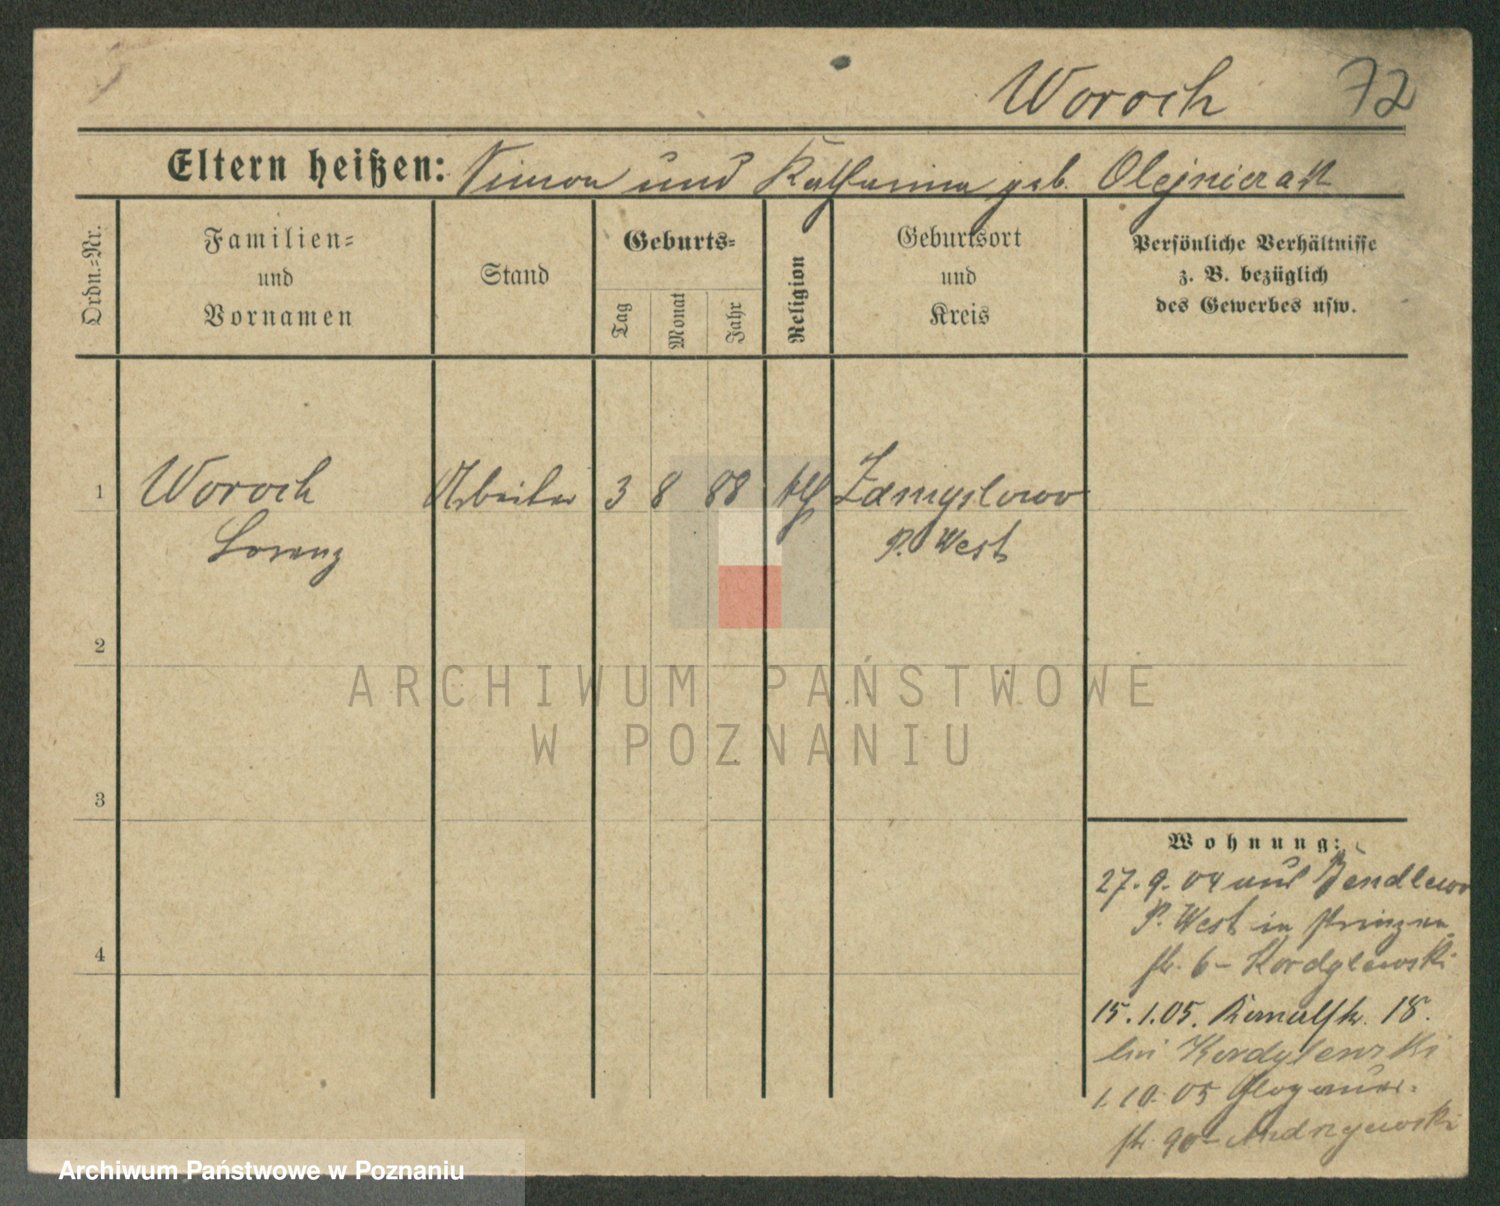 Woroch 72
Eltern heißen: Simon und Katharina geb. Olejniczak
Ordn.-Nr.
Familien-
und
Vornamen
Stand
Geburts-
Tag
Monat
Jahr
Religion
Geburtsort
und
Kreis
Persönliche Verhältnisse
z. B. bezüglich
des Gewerbes usw.
1 Woroch Arbeiter 3 8 88 kth Zamyslowo
Lorenz P. West
2
3
4
Wohnung:
27. 9. 04 aus Bendlewo
P. West in Prinzen
str. 6 - Kordylewski
15. 1. 05. Kanalstr. 18.
bei Kordylewski
1. 10. 05 Glogauer-
str. 90 - Andrzejewski
ARCHIWUM PAŃSTWOWE
W POZNANIU
Archiwum Państwowe w Poznaniu